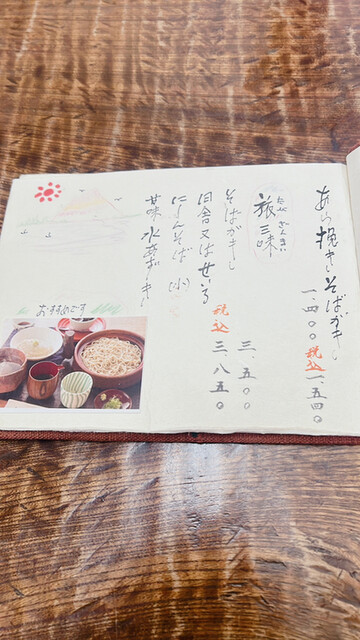 あら挽きそばがき
一、四〇〇
税込 一、五四〇
たび ざんまい
旅三味
そばがき
田舎又はせいろ
にしんそば (小)
甘味 水そばがき
三、五〇〇
税込 三、八五〇
おすすめです